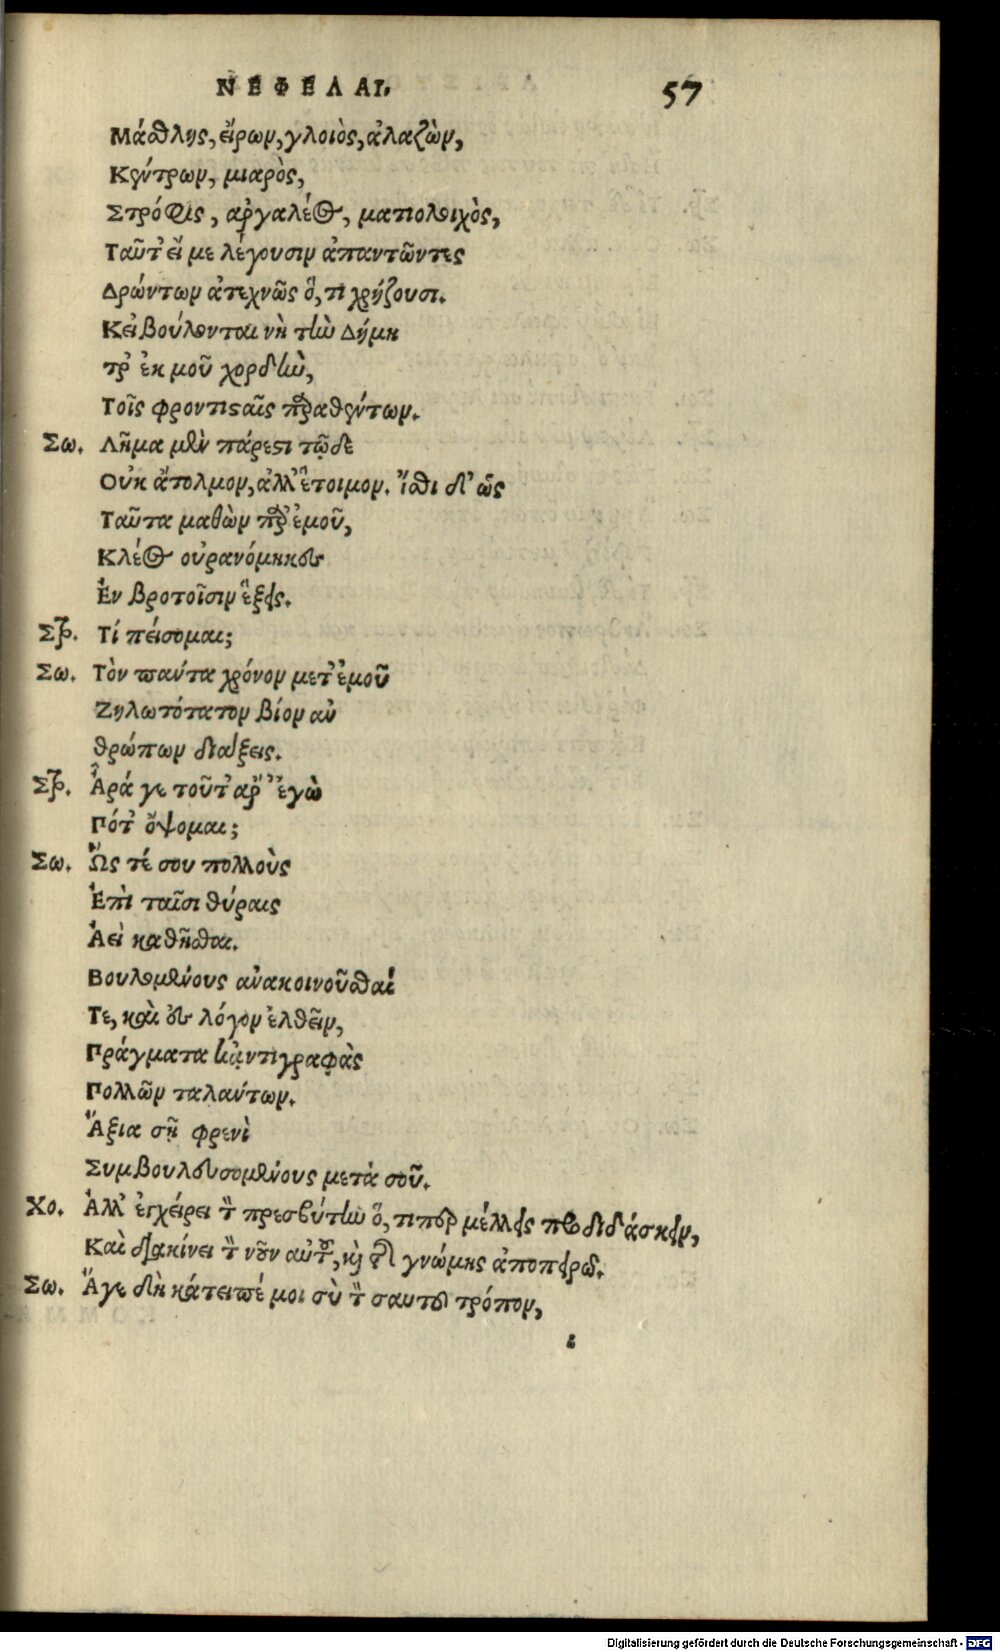 ΝΕΦΕΛΑΙ. 57
Μάσθλης, εἴρων, γλοιὸς, ἀλαζὼν,
Κέντρων, μιαρὸς,
Στρόφις, ἀργαλέος, ματιολοιχὸς,
Ταῦτ' εἴ με λέγουσιν ἀπαντῶντες
Δρώντων ἀτεχνῶς ὅ, τι χρήζουσι.
Κεἰ βούλονται νὴ τὴν Δήμη
τρ' ἐκ μοῦ χορδὴν,
Τοῖς φροντισταῖς παραθέντων.
Σω. Λῆμα μὲν πάρεστι τῷδε
Οὐκ ἄτολμον, ἀλλ' ἕτοιμον. ἴσθι δ' ὡς
Ταῦτα μαθὼν παρ' ἐμοῦ,
Κλέος οὐρανόμηκες
Ἐν βροτοῖσιν ἕξεις.
Στρ. Τί πείσομαι;
Σω. Τὸν πάντα χρόνον μετ' ἐμοῦ
Ζηλωτότατον βίον ἀν
θρώπων διάξεις.
Στρ. Ἆρά γε τοῦτ' ἄρ' ἐγὼ
Πότ' ὄψομαι;
Σω. Ὥς τέ σου πολλοὺς
Ἐπὶ ταῖσι θύραις
Ἀεὶ καθῆσθαι.
Βουλομένους ἀνακοινοῦσθαί
Τε, καὶ ἐς λόγον ἐλθεῖν,
Πράγματα κἀντιγραφὰς
Πολλῶν ταλάντων.
Ἄξια σῇ φρενὶ
Συμβουλευσομένους μετὰ σοῦ.
Χο. Ἀλλ' ἐγχείρει τὸν πρεσβύτην ὅ, τιπερ μέλλεις προδιδάσκειν,
Καὶ διακίνει τὸν νοῦν αὐτοῦ, καὶ τῆς γνώμης ἀποπειρῶ.
Σω. Ἄγε δὴ κάτειπέ μοι σὺ τὸν σαυτοῦ τρόπον,
Digitalisierung gefördert durch die Deutsche Forschungsgemeinschaft - DFG